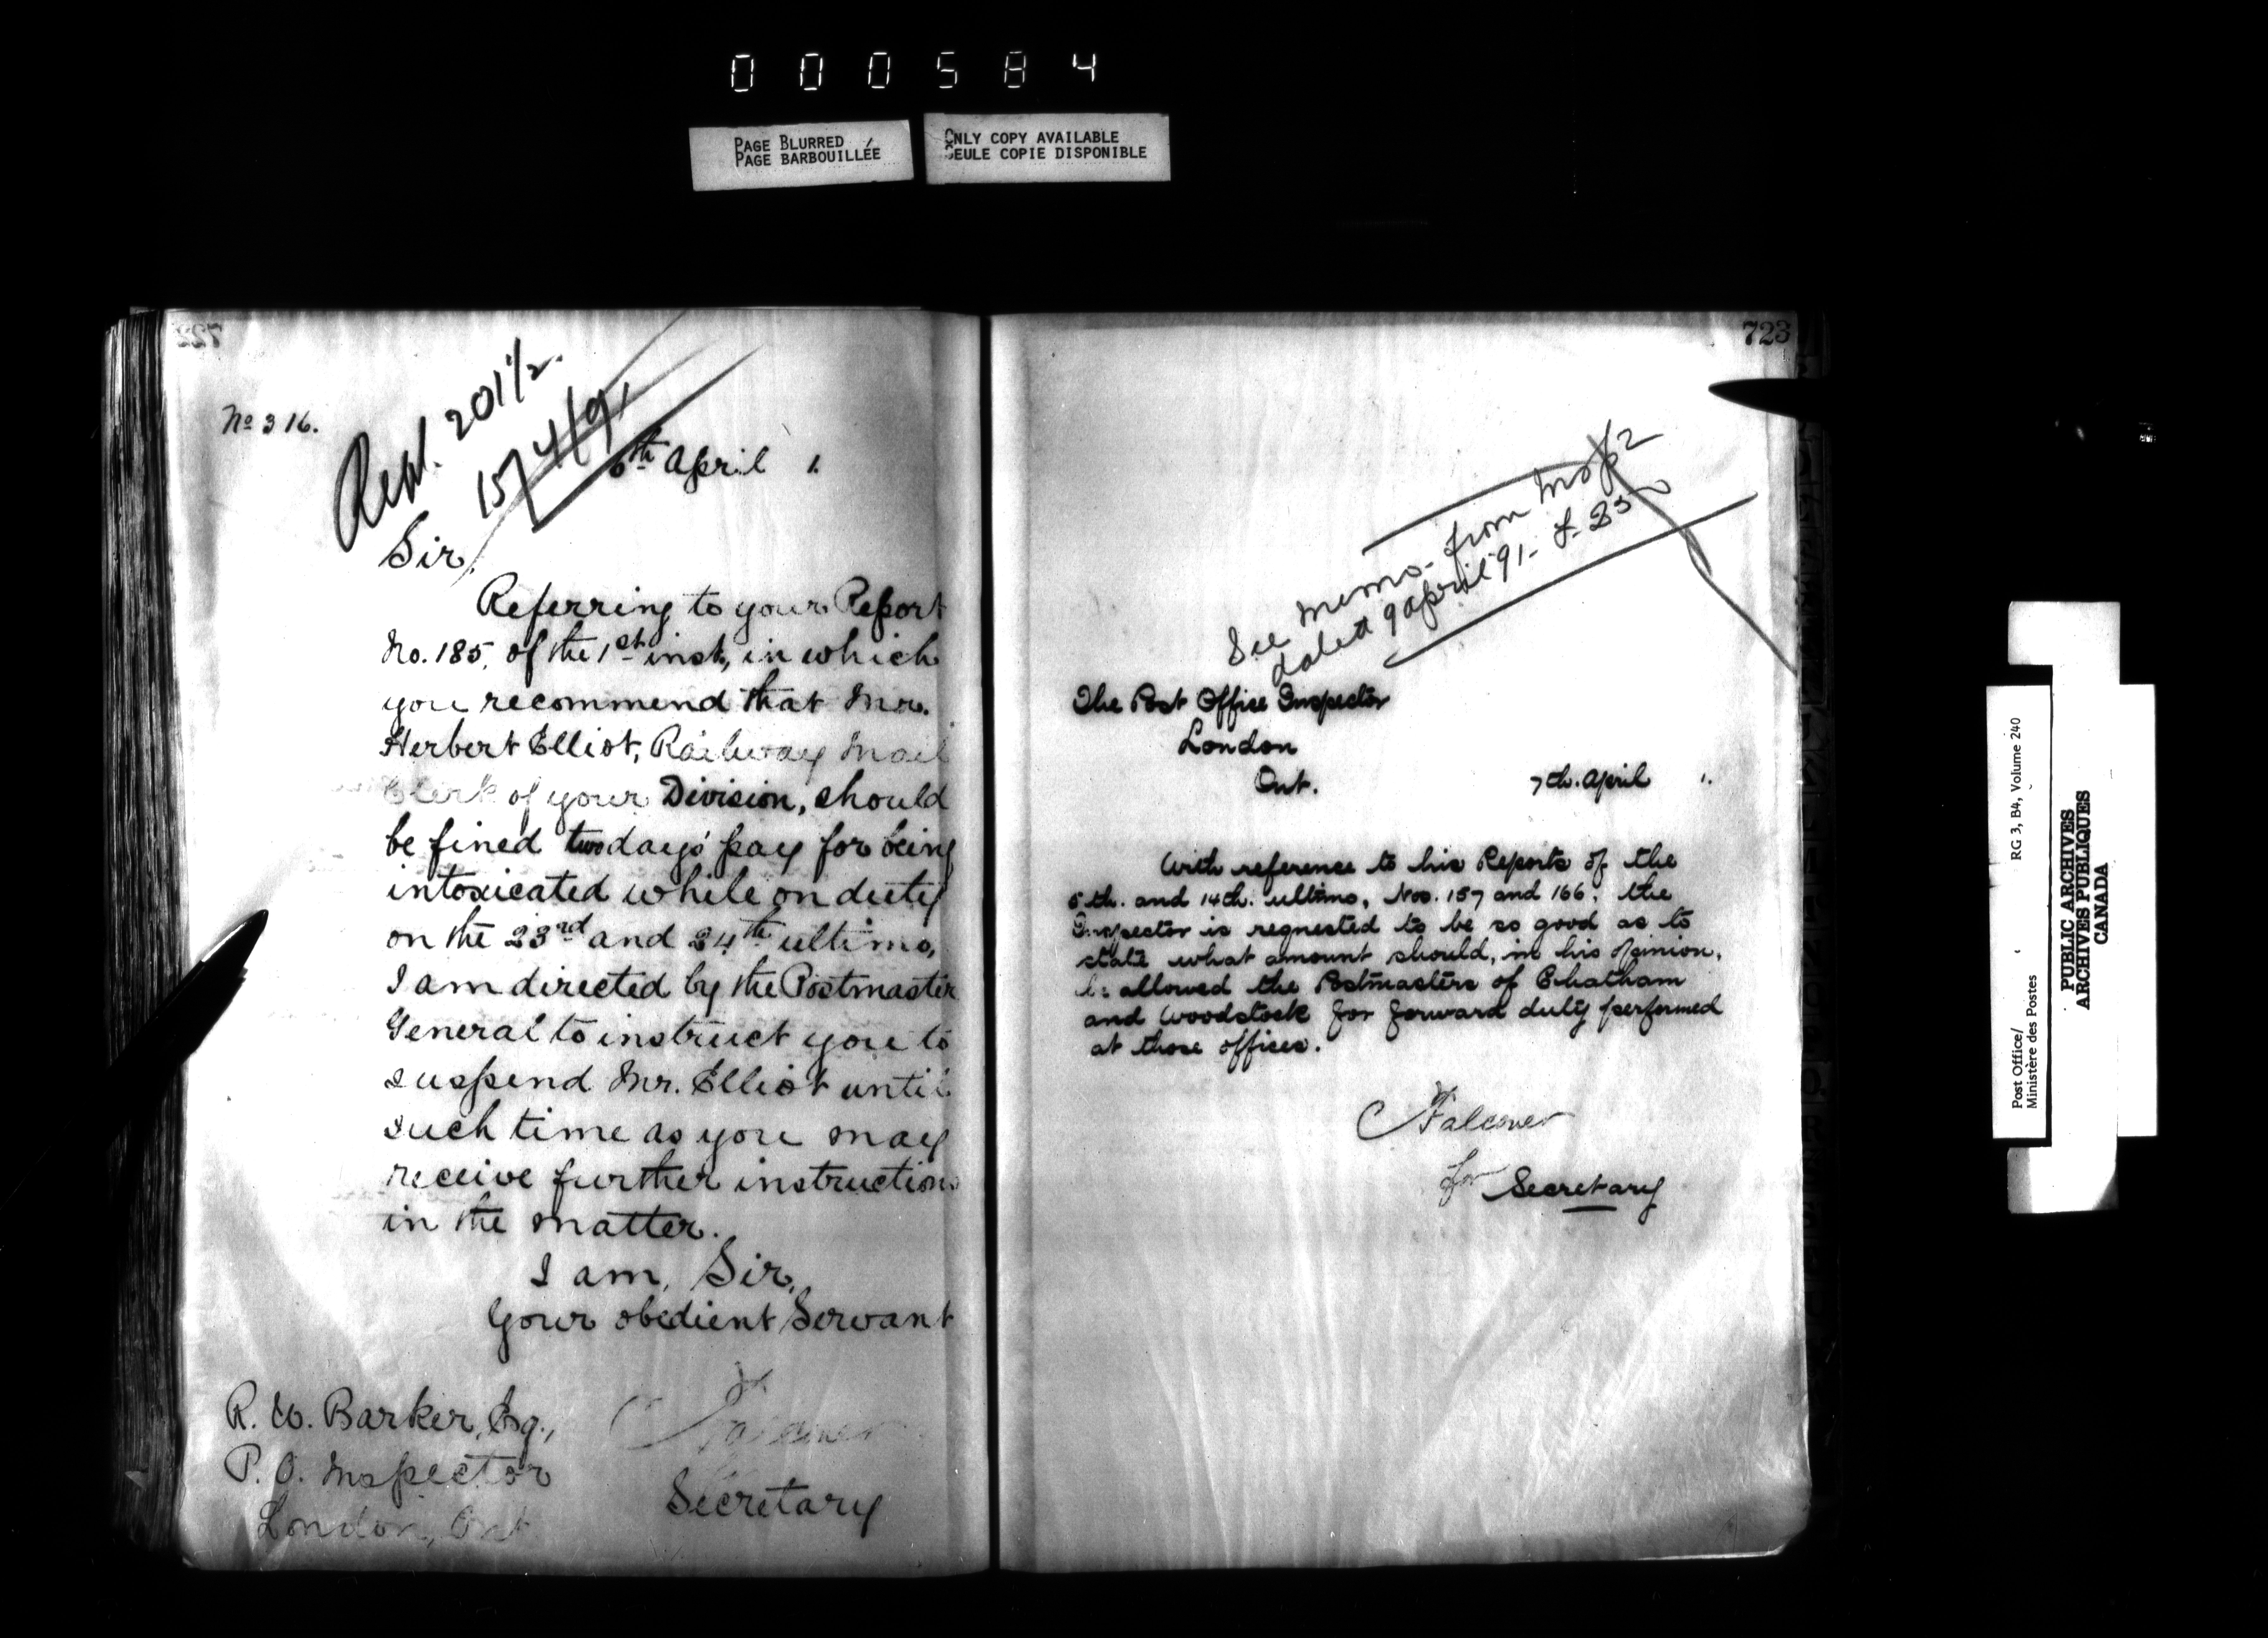 000584
PAGE BLURRED
PAGE BARBOUILLÉE
ONLY COPY AVAILABLE
SEULE COPIE DISPONIBLE
722
No 316.
Repl. 201½.
15/4/91
6th April 1.
Sir,
Referring to your Report
No. 185, of the 1st inst, in which
you recommend that Mr.
Herbert Elliot, Railway Mail
Clerk of your Division, should
be fined two days' pay for being
intoxicated while on duty
on the 23rd and 24th ultimo,
I am directed by the Postmaster
General to instruct you to
suspend Mr. Elliot until
such time as you may
receive further instructions
in the matter.
I am, Sir,
Your obedient Servant
R. W. Barker, Esq.,
P. O. Inspector
London, Ont
Secretary
723
See memo. from
dated 9 April '91.
The Post Office Inspector
London
Ont.
7th. April 1.
With reference to his Reports of the
5th. and 14th. ultimo, Nos. 157 and 166, the
Inspector is requested to be so good as to
state what amount should, in his opinion,
be allowed the Postmasters of Chatham
and Woodstock for forward duty performed
at those offices.
Falconer
for Secretary
Post Office/
Ministère des Postes
RG 3, B4, Volume 240
PUBLIC ARCHIVES
ARCHIVES PUBLIQUES
CANADA